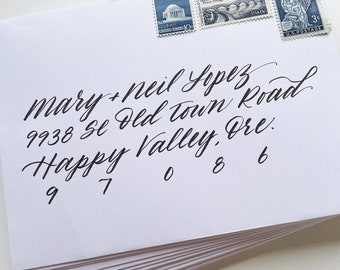 Mary + Neil Lopez
9938 Se Old Town Road
Happy Valley, Ore.
9 7 0 8 6